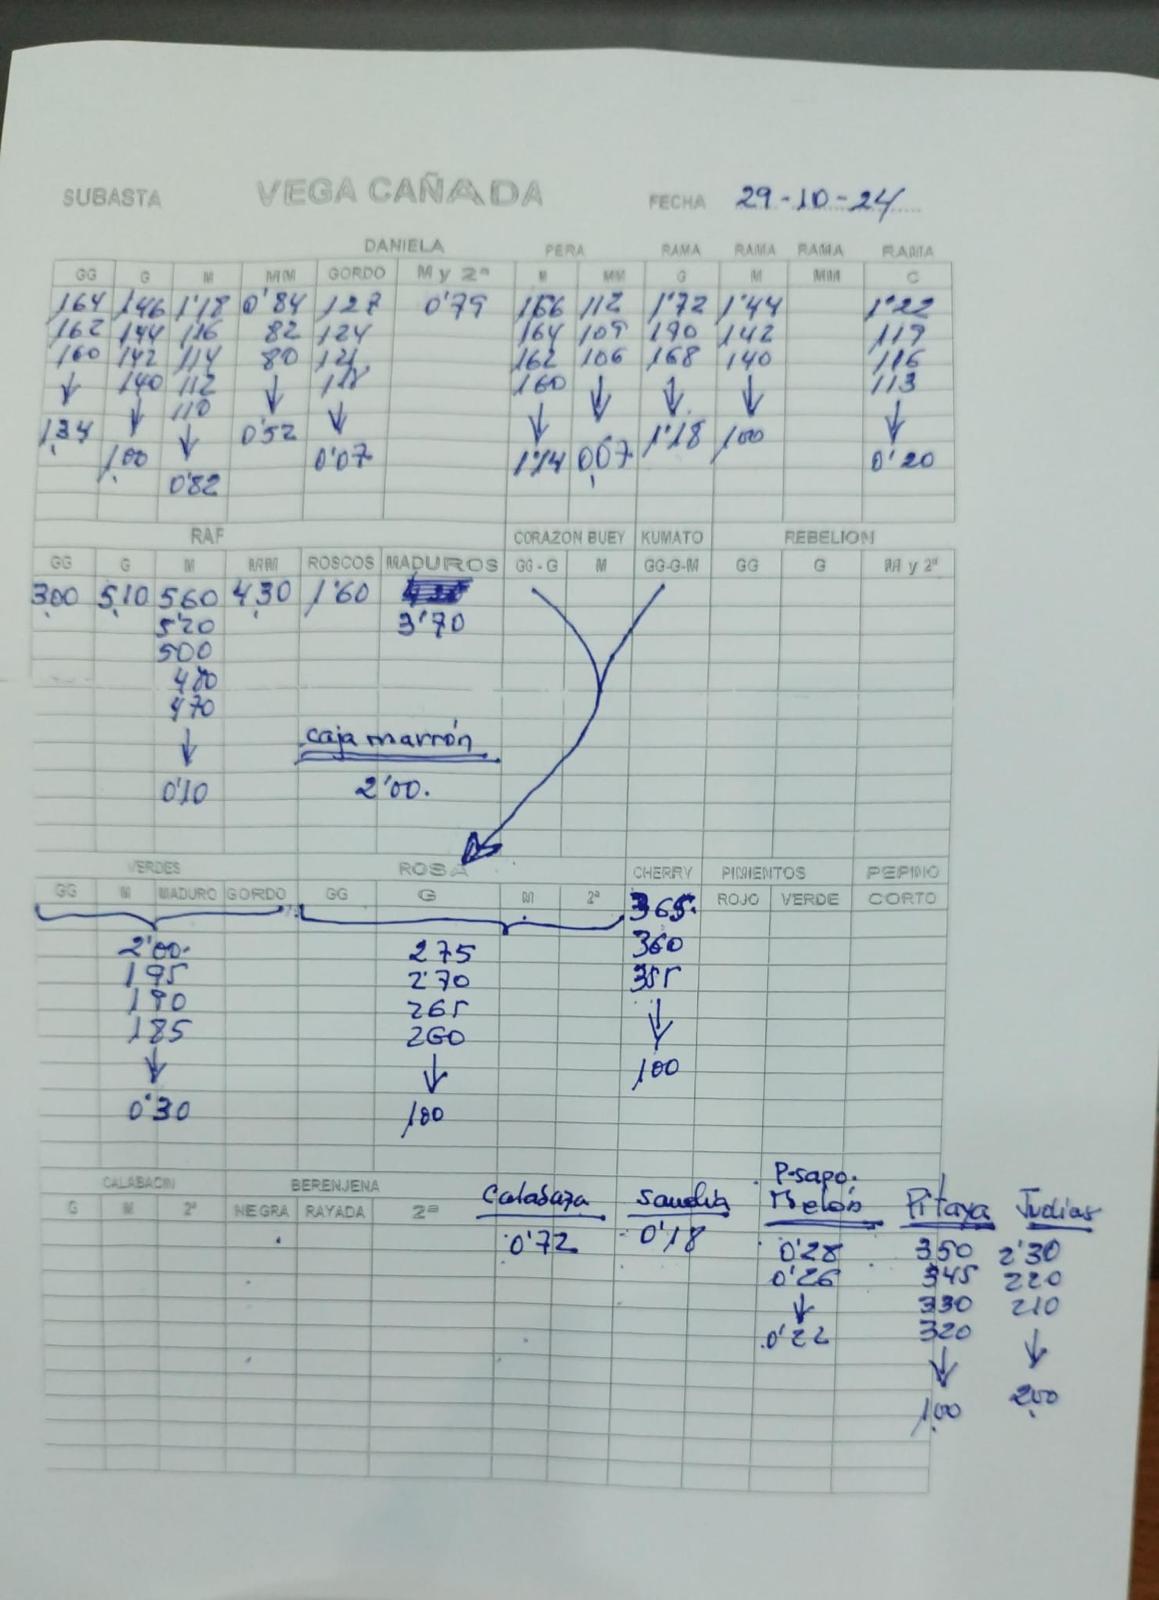 SUBASTA VEGA CAÑADA FECHA 29-10-24
DANIELA PERA RAMA RAMA RAMA RAMA
GG G M MM GORDO M y 2ª M MM G M MM C
164 146 1'18 0'84 127 0'79 166 112 1'72 1'44 1'22
162 144 116 82 124 164 109 170 142 119
160 142 114 80 121 162 106 168 140 116
↓ 140 112 ↓ 118 160 ↓ ↓ ↓ 113
134 ↓ 110 0'52 ↓ ↓ 007 1'18 100 ↓
1,00 ↓ 0'07 1'14 0'20
0'82
RAF CORAZON BUEY KUMATO REBELION
GG G M MM ROSCOS MADUROS GG - G M GG-G-M GG G M y 2ª
300 5,10 560 4,30 1'60
5'20 3'70
500
480
470
↓ caja marrón
0'10 2'00.
VERDES ROSA CHERRY PIMIENTOS PEPINO
GG M MADURO GORDO GG G M 2ª ROJO VERDE CORTO
365.
2'00. 275 360
195 2'70 355
190 265 ↓
185 260 100
↓ ↓
0'30 100
CALABACIN BERENJENA
G M 2ª NEGRA RAYADA 2ª Calabaza Sandia P-sapo. Melón Pitaya Judias
0'72 0'18 0'28 350 2'30
0'26 345 220
↓ 330 210
0'22 320 ↓
↓ 2,00
1,00